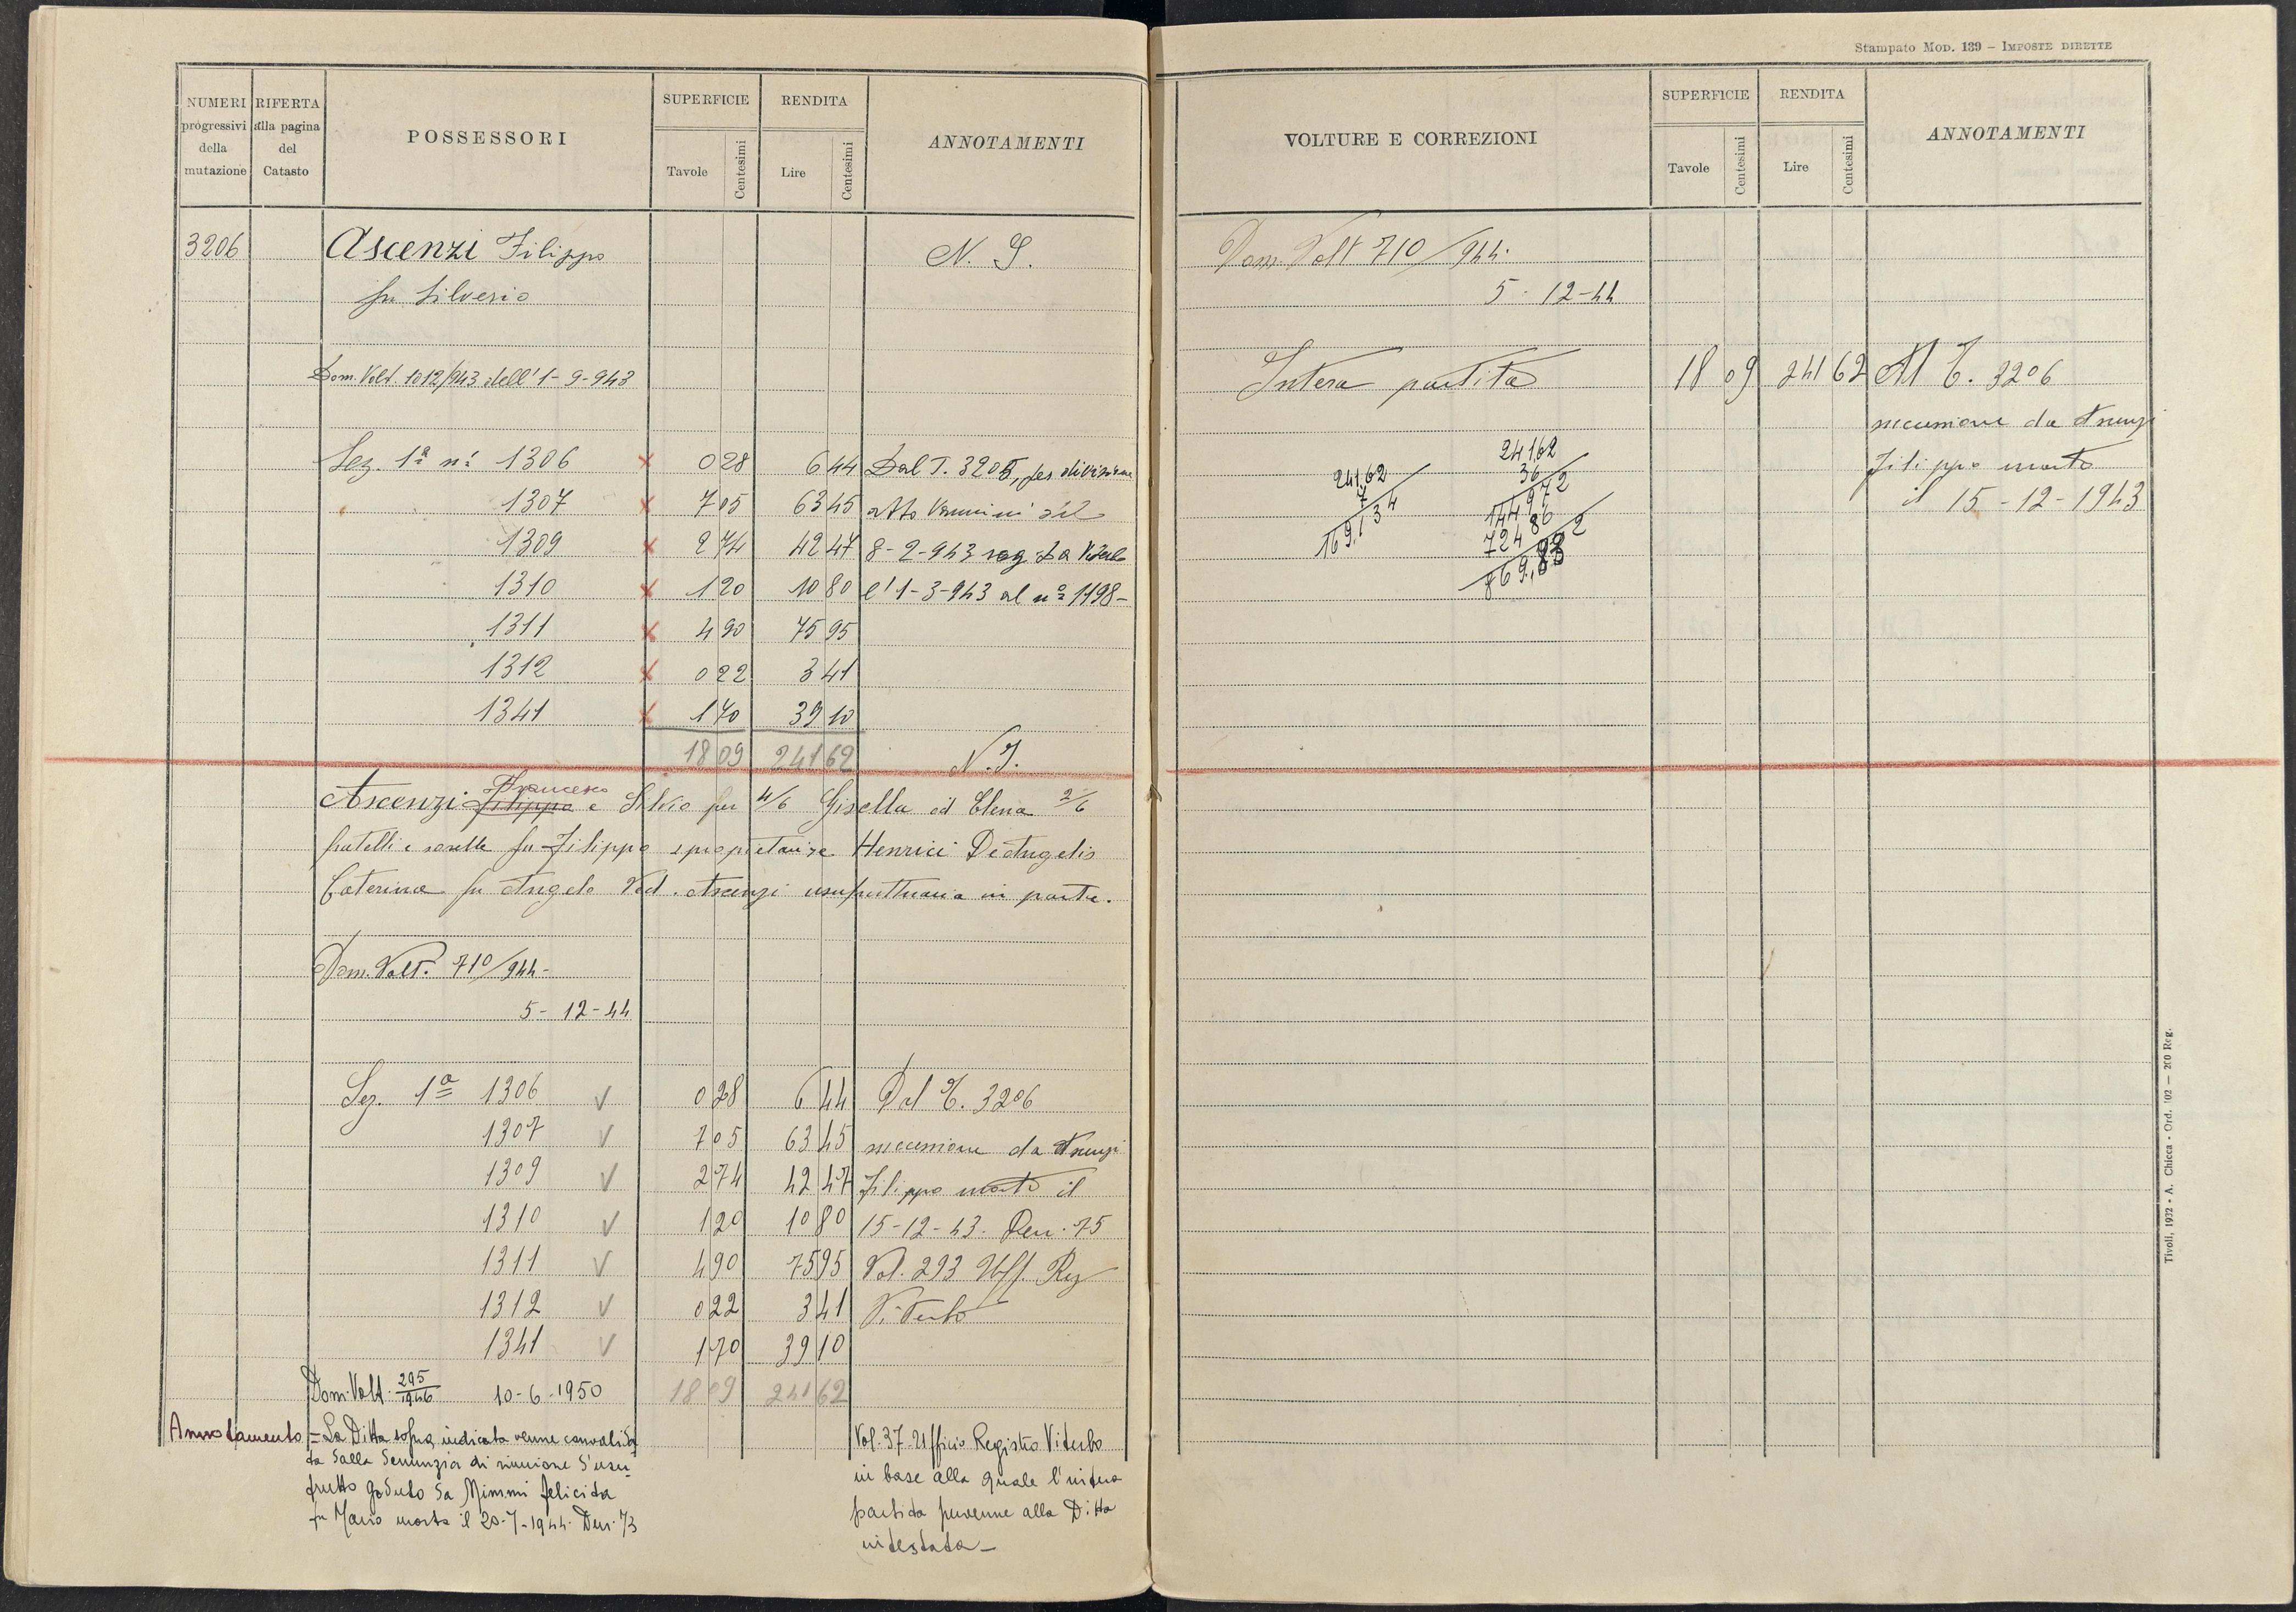 NUMERI progressivi della mutazione
RIFERTA alla pagina del Catasto
POSSESSORI
SUPERFICIE
Tavole Centesimi
RENDITA
Lire Centesimi
ANNOTAMENTI
3206 Ascenzi Filippo N. I.
fu Silverio
Dom. Volt. 1012/943 dell'1-9-943
Sez. 1ª nº 1306 x 0 28 6 44 Dal T. 3205, per divisione
1307 x 7 05 63 45 atto Vannini del
1309 x 2 74 42 47 8-2-943 reg. to a Viterbo
1310 x 1 20 10 80 l'1-3-943 al nº 1198-
1311 x 4 90 75 95
1312 x 0 22 3 41
1341 x 1 70 39 10
18 09 241 62 N. I.
Francesco
Ascenzi Filippo e Silvio per 4/6 Gisella ed Elena 2/6
fratelli e sorelle fu Filippo proprietari e Henrici De Angelis
Caterina fu Angelo Ved. Ascenzi usufruttuaria in parte.
Dom. Volt. 710/944-
5-12-44
Sez. 1ª 1306 V 0 28 6 44 Dal T. 3206
1307 V 7 05 63 45 successione da Ascenzi
1309 V 2 74 42 47 Filippo morto il
1310 V 1 20 10 80 15-12-43. Den. 75
1311 V 4 90 75 95 Vol. 293 Uff. Reg
1312 V 0 22 3 41 Viterbo
1341 V 1 70 39 10
Dom. Volt. 295/1946 10-6-1950 18 09 241 62
Annotamento = La Ditta sopra indicata venne convalida
ta dalla denunzia di riunione d'usu-
frutto goduto da Mimmi Felicita
fu Mario morta il 20-7-1944. Den. 73
Vol. 37 Ufficio Registro Viterbo
in base alla quale l'intera
partita pervenne alla Ditta
intestata-
Stampato Mod. 139 – Imposte dirette
VOLTURE E CORREZIONI
SUPERFICIE
Tavole Centesimi
RENDITA
Lire Centesimi
ANNOTAMENTI
Dom. Volt 710/944.
5-12-44
Intera partita 18 09 241 62 Al T. 3206
successione da Ascenzi
Filippo morto
il 15-12-1943
241,62
7
169,134
241,62
36
144972
72486
869,832
Tivoli, 1932 - A. Chicca - Ord. 702 — 200 Reg.